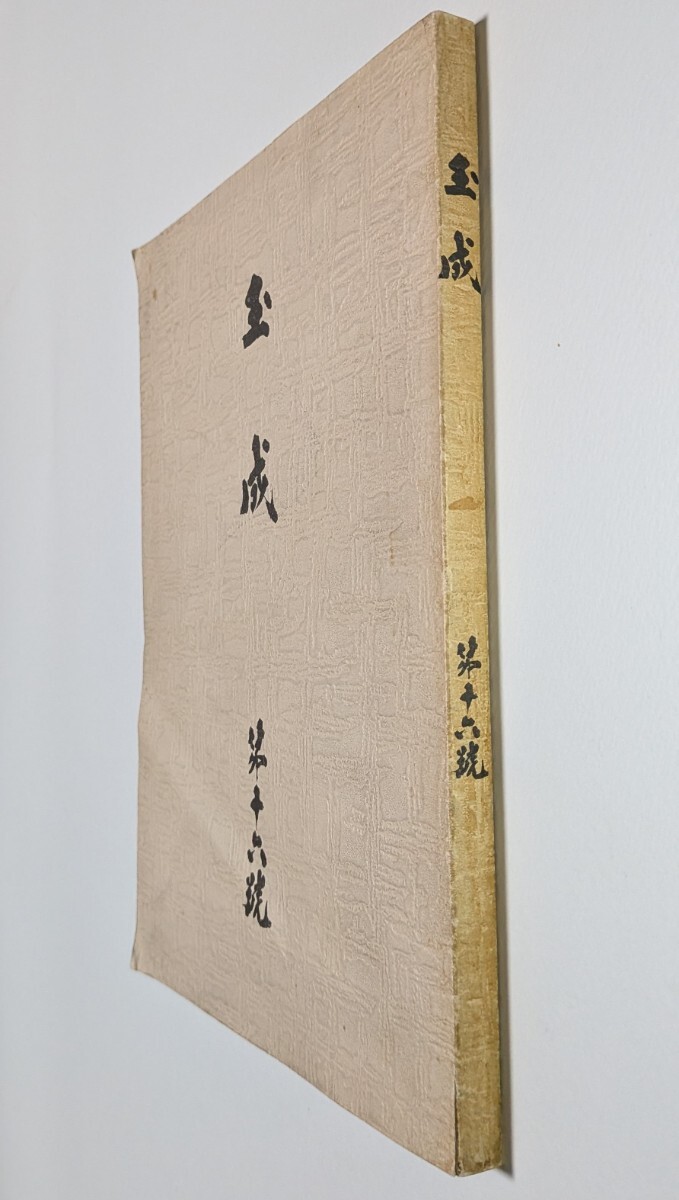 玉成
第十六號
玉成
第十六號